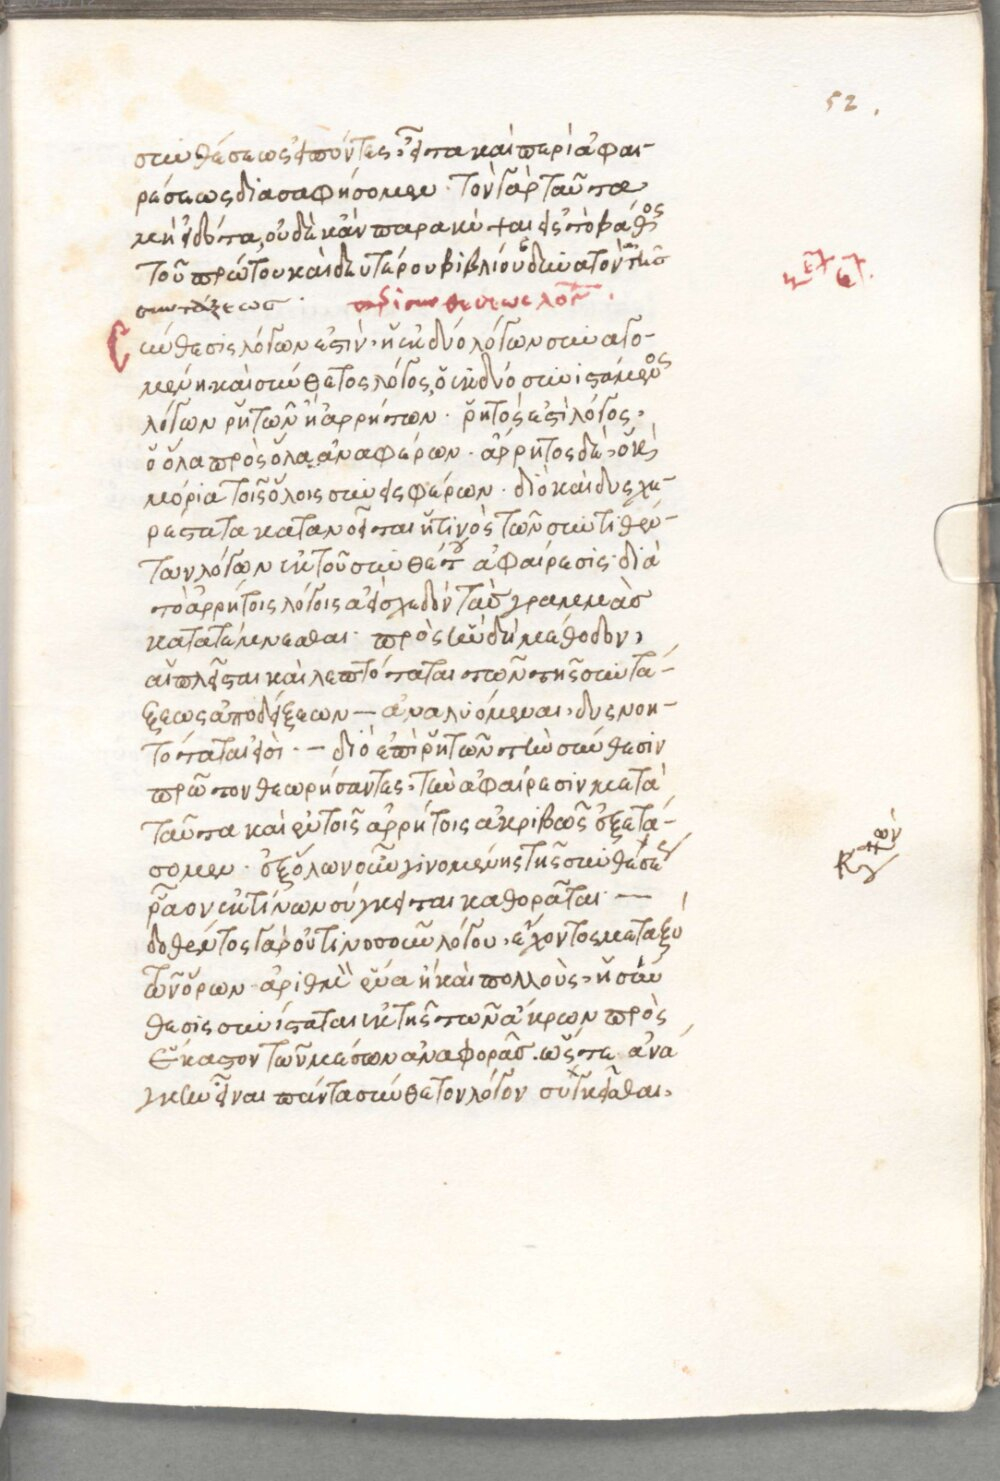 52.
συνθέσεως εἰπόντες, εἶτα καὶ περὶ ἀφαι-
ρέσεως διασαφήσομεν. τὸν γὰρ ταῦτα
μὴ εἰδότα, οὐδὲ κἂν παρακύψαι εἰς τὸ βάθος
τοῦ πρώτου καὶ δευτέρου βιβλίου δυνατὸν τῆς
συντάξεως. περὶ συνθέσεως λόγων.
Σύνθεσις λόγων ἐστὶν, ἡ ἐκ δύο λόγων συναγο-
μένη. καὶ σύνθετος λόγος, ὁ ἐκ δύο συνιστάμενος
λόγων ῥητῶν ἢ ἀρρήτων. ῥητός ἐστι λόγος,
ὁ ὅλα πρὸς ὅλα ἀναφέρων. ἄρρητος δὲ, ὁ καὶ
μόρια τοῖς ὅλοις συνεισφέρων. διὸ καὶ δυσχε-
ρέστατα κατανοεῖται ἥ τινὸς τῶν συντιθεν-
των λόγων ἐκ τοῦ συνθέτου ἀφαίρεσις. διὰ
τὸ ἀρρήτοις λόγοις ἀεὶ σχεδὸν τὰς γραμμὰς
κατατέμνεσθαι. πρὸς ἣν δὴ μέθοδον,
αἱ πλεῖσται καὶ λεπτόταται τῶν τῆς συντά-
ξεως ἀποδείξεων — ἀναλυόμεναι, δυσνοη-
τόταταί εἰσι. — διὸ ἐπὶ ῥητῶν τὴν σύνθεσιν
πρῶτον θεωρήσαντες, τὴν ἀφαίρεσιν μετὰ
ταῦτα καὶ ἐν τοῖς ἀρρήτοις ἀκριβῶς ἐξετά-
σομεν. ἐξ ὅλων οὖν γινομένης τῆς συνθέσεως
ῥᾷον ἐκ τίνων σύγκειται καθορᾶται —
δοθέντος γὰρ οὑτινοσοῦν λόγου, ἔχοντος μεταξὺ
τῶν ὅρων ἀριθμὸν ἕνα ἢ καὶ πολλοὺς, ἡ σύν
θεσις συνίσταται ἐκ τῆς τῶν ἄκρων πρὸς
ἕκαστον τῶν μέσων ἀναφορᾶς. ὥστε ἀνά
γκην εἶναι πάντα σύνθετον λόγον συγκεῖσθαι,